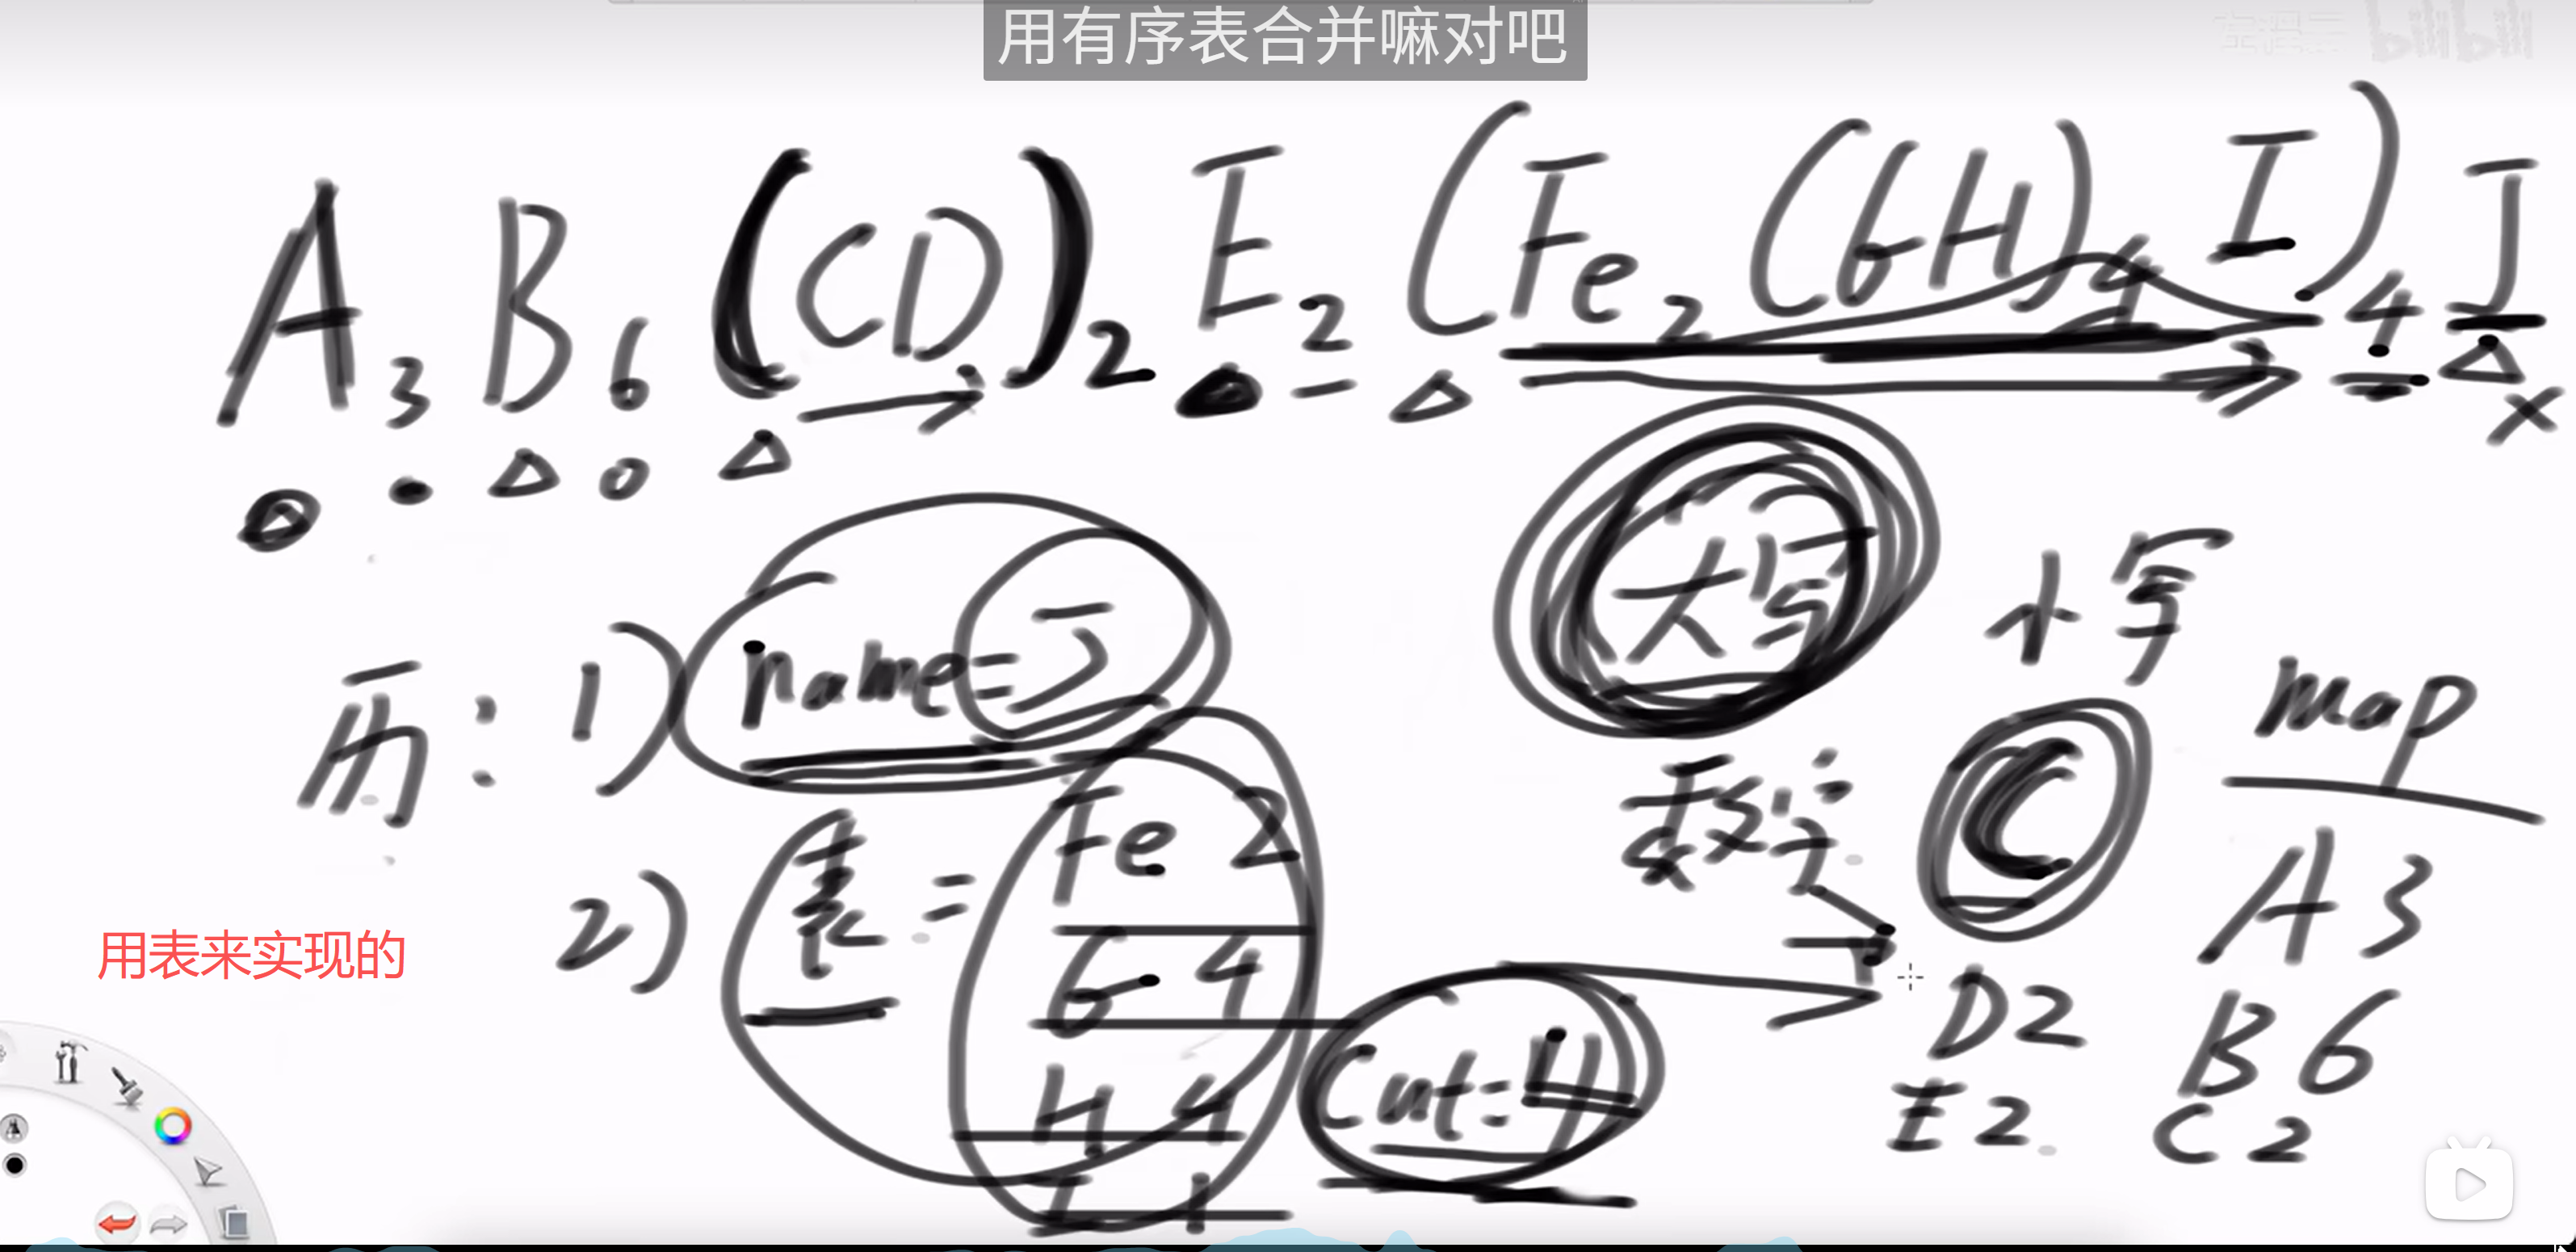 用有序表合并嘛对吧
bilibili
A3B6(CD)2E2(Fe2(GH)4I)4J
大写
小写
历: 1) name=J
map
数字
C
A 3
2) 表 = Fe 2
G 4
D 2
B 6
H 4
Cnt=4
E 2
C 2
I 1
用表来实现的